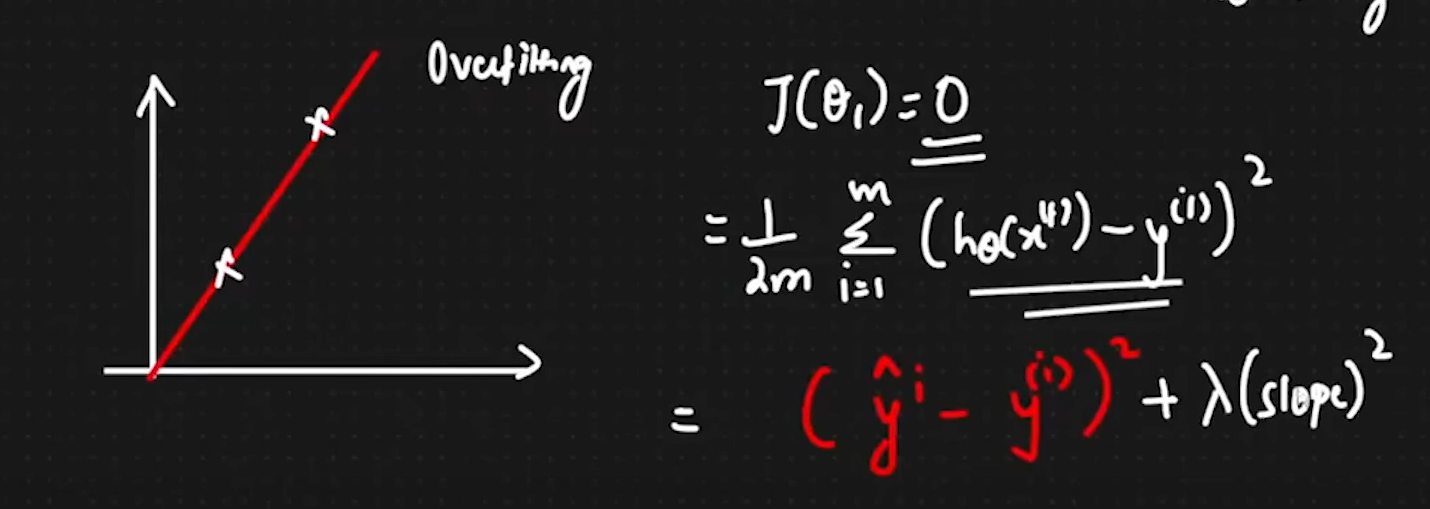 Overfitting
J(θ₁) = 0
= 1/2m Σ_{i=1}^{m} (hθ(x⁽ⁱ⁾) – y⁽ⁱ⁾)²
= (ŷⁱ – y⁽ⁱ⁾)² + λ(slope)²